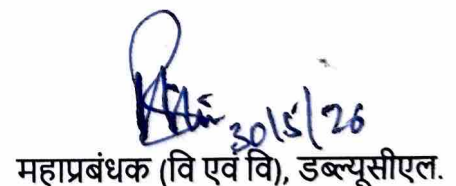 30/5/26
महाप्रबंधक (वि एवं वि), डब्ल्यूसीएल.